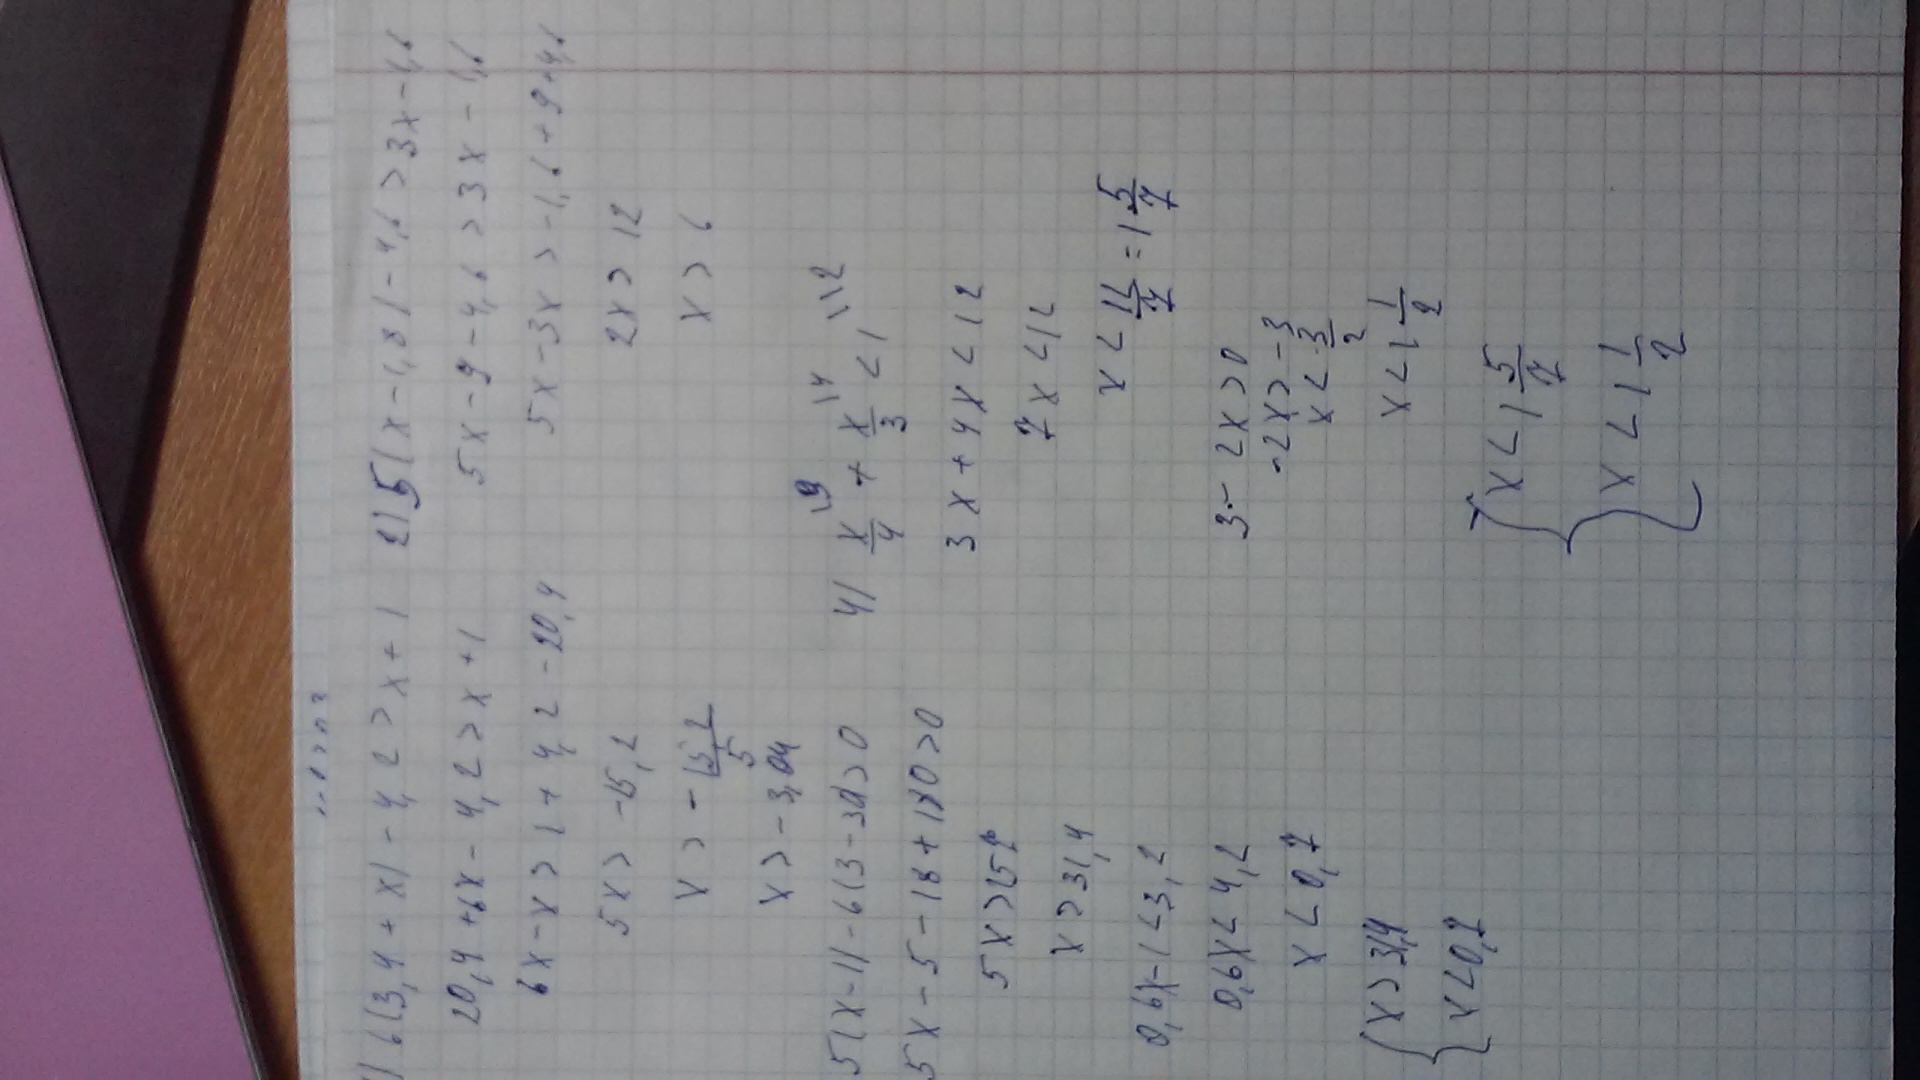 1) 6(3,4 + x) - 4,2 > x + 1
20,4 + 6x - 4,2 > x + 1
6x - x > 1 + 4,2 - 20,4
5x > -15,2
x > - 15,2/5
x > - 3,04
2) 5(x - 1,8) - 4,6 > 3x - 1,6
5x - 9 - 4,6 > 3x - 1,6
5x - 3x > -1,6 + 9 + 4,6
2x > 12
x > 6
5(x - 1) - 6(3 - 30) > 0
5x - 5 - 18 + 180 > 0
5x > 157
x > 31,4
0,6x - 1 < 3,2
0,6x < 4,2
x < 0,7
{ x > 31,4
x < 0,7
4) x/4 + x/3 < 1
3x + 4x < 12
7x < 12
x < 12/7 = 1 5/7
3 - 2x > 0
-2x > -3
x < 3/2
x < 1 1/2
{ x < 1 5/7
x < 1 1/2